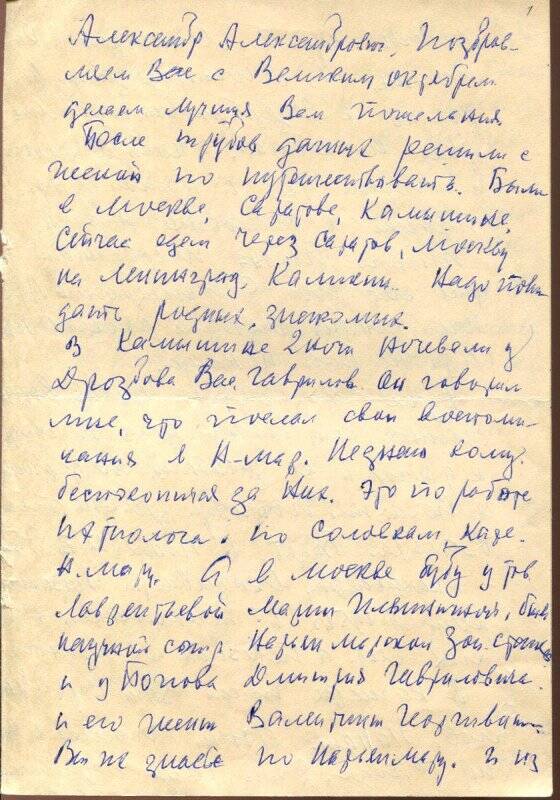 1
Александр Александрович, Поздрав-
ляем Вас с Великим октябрем
делаем лучшия Вам пожелания
После трудов решили с
женой по путешествовать. Были
в Москве, Саратове, Камышине,
Сейчас едем через Саратов, Москву
на Ленинград, Надо пови
дать родных, знакомых.
В Камышине 2 ночи ночевали у
Дроздова Вас. Гаврилов. Он говорил
мне, что послал свои воспоми-
нания в Н-мар. Не знаю кому.
за Ник. Это по работе
по Соловкам,
Н. Мару. А в Москве буду у тов
Лаврентьевой Марии была
научный сотр Нарьян марской Зон. станц
и у Попова Дмитрия Гавриловича
и его жены Валентины
Вы их знаете по Нарьян мару. и из